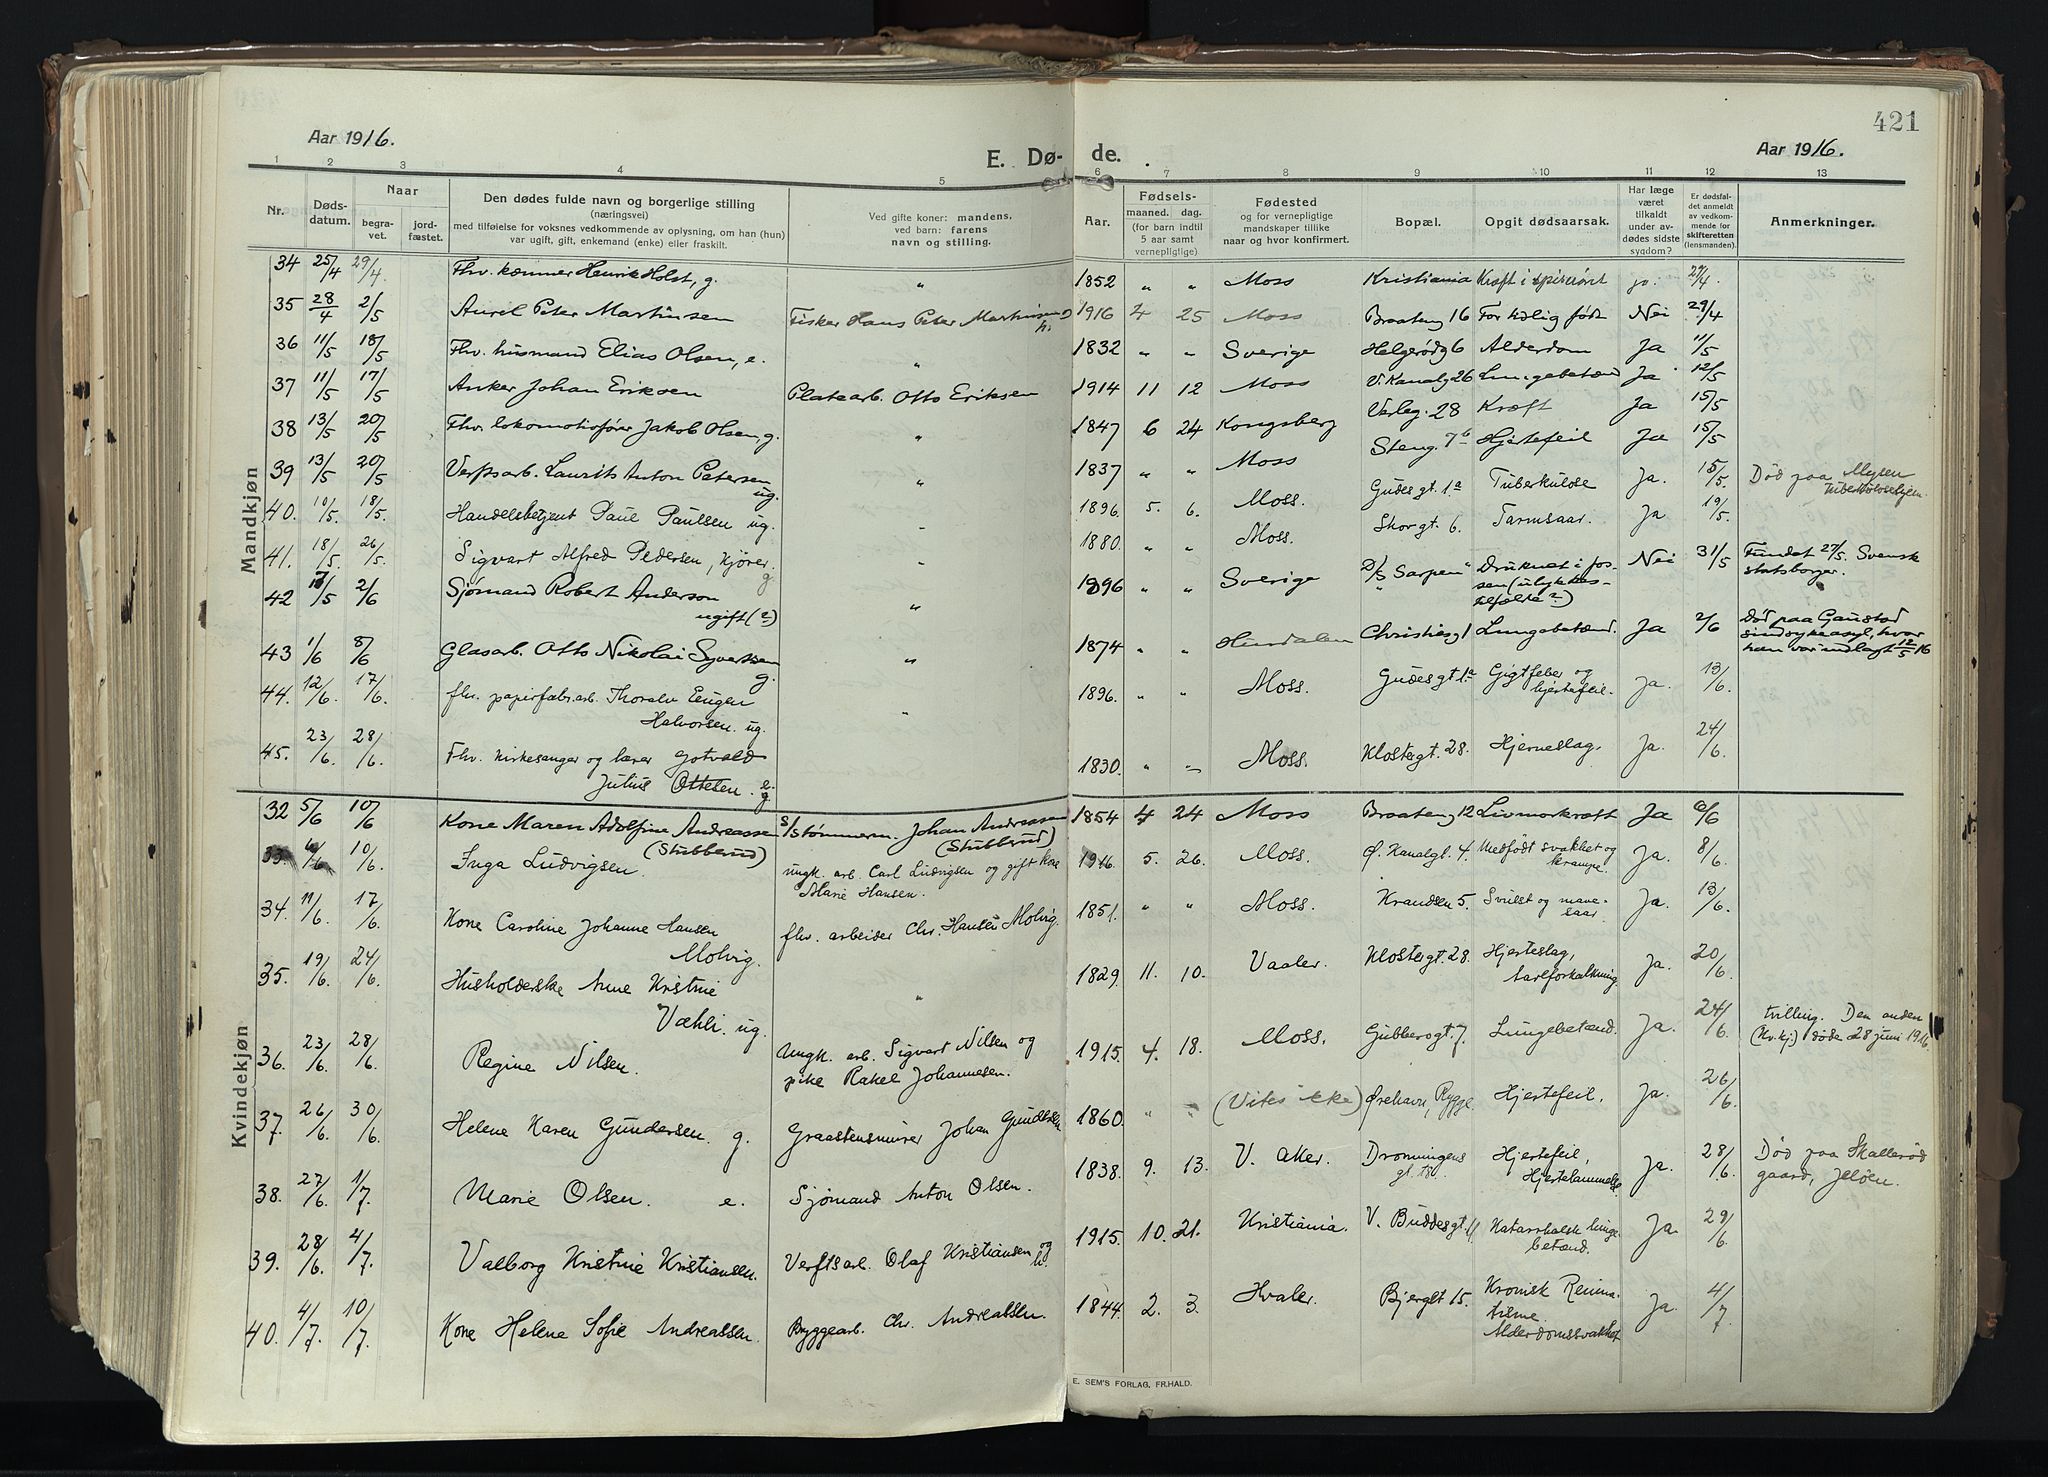 421
Aar 1916.
E. Dø- de.
Aar 1916.
1 2 3 4 5 6 7 8 9 10 11 12 13
Nr.
Døds-
datum.
Naar
begra-
vet.
jord-
fæstet.
Den dødes fulde navn og borgerlige stilling
(næringsvei)
med tilføielse for voksnes vedkommende av oplysning, om han (hun)
var ugift, gift, enkemand (enke) eller fraskilt.
Ved gifte koner: mandens,
ved barn: farens
navn og stilling.
Aar.
Fødsels-
maaned. dag.
(for barn indtil
5 aar samt
vernepligtige)
Fødested
og for vernepligtige
mandskaper tillike
naar og hvor konfirmert.
Bopæl.
Opgit dødsaarsak.
Har læge
været
tilkaldt
under av-
dødes sidste
sygdom?
Er dødsfal-
det anmeldt
av vedkom-
mende for
skifteretten
(lensmanden).
Anmerkninger.
Mandkjøn
34 25/4 29/4 Fhv. kæmner Henrik Holst, g. „ 1852 „ „ Moss Kristiania Kræft i spiserøret ja. 27/4
35 28/4 2/5 Aurel Peter Martinsen Fisker Hans Peter Martinsen 1916 4 25 Moss Braateng 16 For tidlig født Nei 29/4
36 11/5 18/5 Fhv. husmand Elias Olsen, e. „ 1832 „ „ Sverige Helgerødg 6 Alderdom Ja 11/5
37 11/5 17/5 Anker Johan Eriksen Platearb. Otto Eriksen 1914 11 12 Moss V. Kanalg 26 Lungebetænd Ja 12/5
38 13/5 20/5 Fhv. lokomotivfører Jakob Olsen, g. „ 1847 6 24 Kongsberg Varleg. 28 Kræft Ja 15/5
39 13/5 20/5 Verfsarb. Laurits Anton Petersen
ug. „ 1837 „ „ Moss Steng. 7b Hjertefeil Ja 15/5
40. 10/5. 18/5. Handelsbetjent Paul Paulsen ug. 1896. 5. 6. Moss. Gudes gt. 1a Tuberkulose Ja. 15/5. Død paa Mysen
tuberkulosehjem.
41. 18/5. 26/5. Sigvart Alfred Pedersen, kjører.
g 1880. „ „ Moss. Skovgt. 6. Tarmsaar. Ja 19/5.
42 17/5 2/6 Sjømand Robert Anderson
ugift (?) „ 1896 „ „ Sverige D/S „Sarpen“ Druknet i fos-
sen (ulykkes-
tilfælde?) Nei 31/5 Fundet 27/5. Svensk
statsborger.
43 1/6 8/6 Glasarb. Otto Nikolai Syvertsen
g. „ 1874 „ „ Hurdalen Christiesg 1 Lungebetænd. Ja 2/6 Død paa Gaustad
sindsykeasyl, hvor
han var indlagt 12/5 16
44. 12/6. 17/6. fhv. papirfabr.arb. Thoralv Eugen
Halvorsen. ug. „ 1896. „ „ Moss. Gudes gt 1a Gigtfeber og
hjertefeil. Ja. 13/6.
45. 23/6. 28/6. Fhv. kirkesanger og lærer Gotvald
Julius Ottesen. 1830. „ „ Moss. Klostergt. 28. Hjerneslag. Ja. 24/6.
Kvindekjøn
32 5/6 10/6 Kone Maren Adolfine Andreassen
(Stubberud) S/tømmerm. Johan Andreassen
(Stubberud) 1854 4 24 Moss Braateng 12 Livmorkræft Ja 6/6
33. 6/6 10/6 Inga Ludvigsen. ungk. arb. Carl Ludvigsen og gift kone
Marie Hansen. 1916. 5. 26. Moss. Ø. Kanalgt. 4. Medfødt svakhet og
krampe. Ja. 8/6.
34. 11/6. 17/6. Kone Caroline Johanne Hansen
Molvig. fhv. arbeider Chr. Hansen Molvig. 1851. „ „ Moss. Krandsen 5. Svulst og mave-
saar. Ja. 13/6.
35. 19/6. 24/6. Husholderske Anne Kristine
Væhli. ug. „ 1829. 11. 10. Vaaler. Klostergt. 28. Hjerteslag,
Aarforkalkning. Ja. 20/6.
36. 23/6. 28/6. Regine Nilsen. Ungk. arb. Sigvart Nilsen og
pike Rakel Johannesen. 1915. 4. 18. Moss. Gubberogt 7. Lungebetænd. Ja. 24/6. tvilling. Den anden
(Kv.kj.) døde 28 juni 1916.
37. 26/6. 30/6. Helene Karen Gundersen. g. Graastensmurer Johan Gundersen 1860. „ „ (Vites ikke) Ørehavn, Rygge. Hjertefeil. Ja. 26/6.
38. 27/6. 1/7. Marie Olsen. e. Sjømand Anton Olsen. 1838. 9. 13. V. Aker. Dronningens
gt. 18. Hjertefeil,
Hjertelammelse Ja. 28/6. Død paa Skallerød
gaard, Jeløen.
39. 28/6. 4/7. Valborg Kristine Kristiansen. Verftsarb. Olaf Kristiansen og
h. 1915. 10. 21. Kristiania. V. Buddesgt. 11. Katarrhalsk lunge
betænd. Ja. 29/6.
40. 4/7. 10/7 Kone Helene Sofie Andreassen. Bryggearb. Chr. Andreassen. 1844. 2. 3. Hvaler. Bjerget 15. Kronisk Reuma-
tisme
Alderdomssvakhet Ja. 4/7
E. SEM'S FORLAG, FR.HALD.